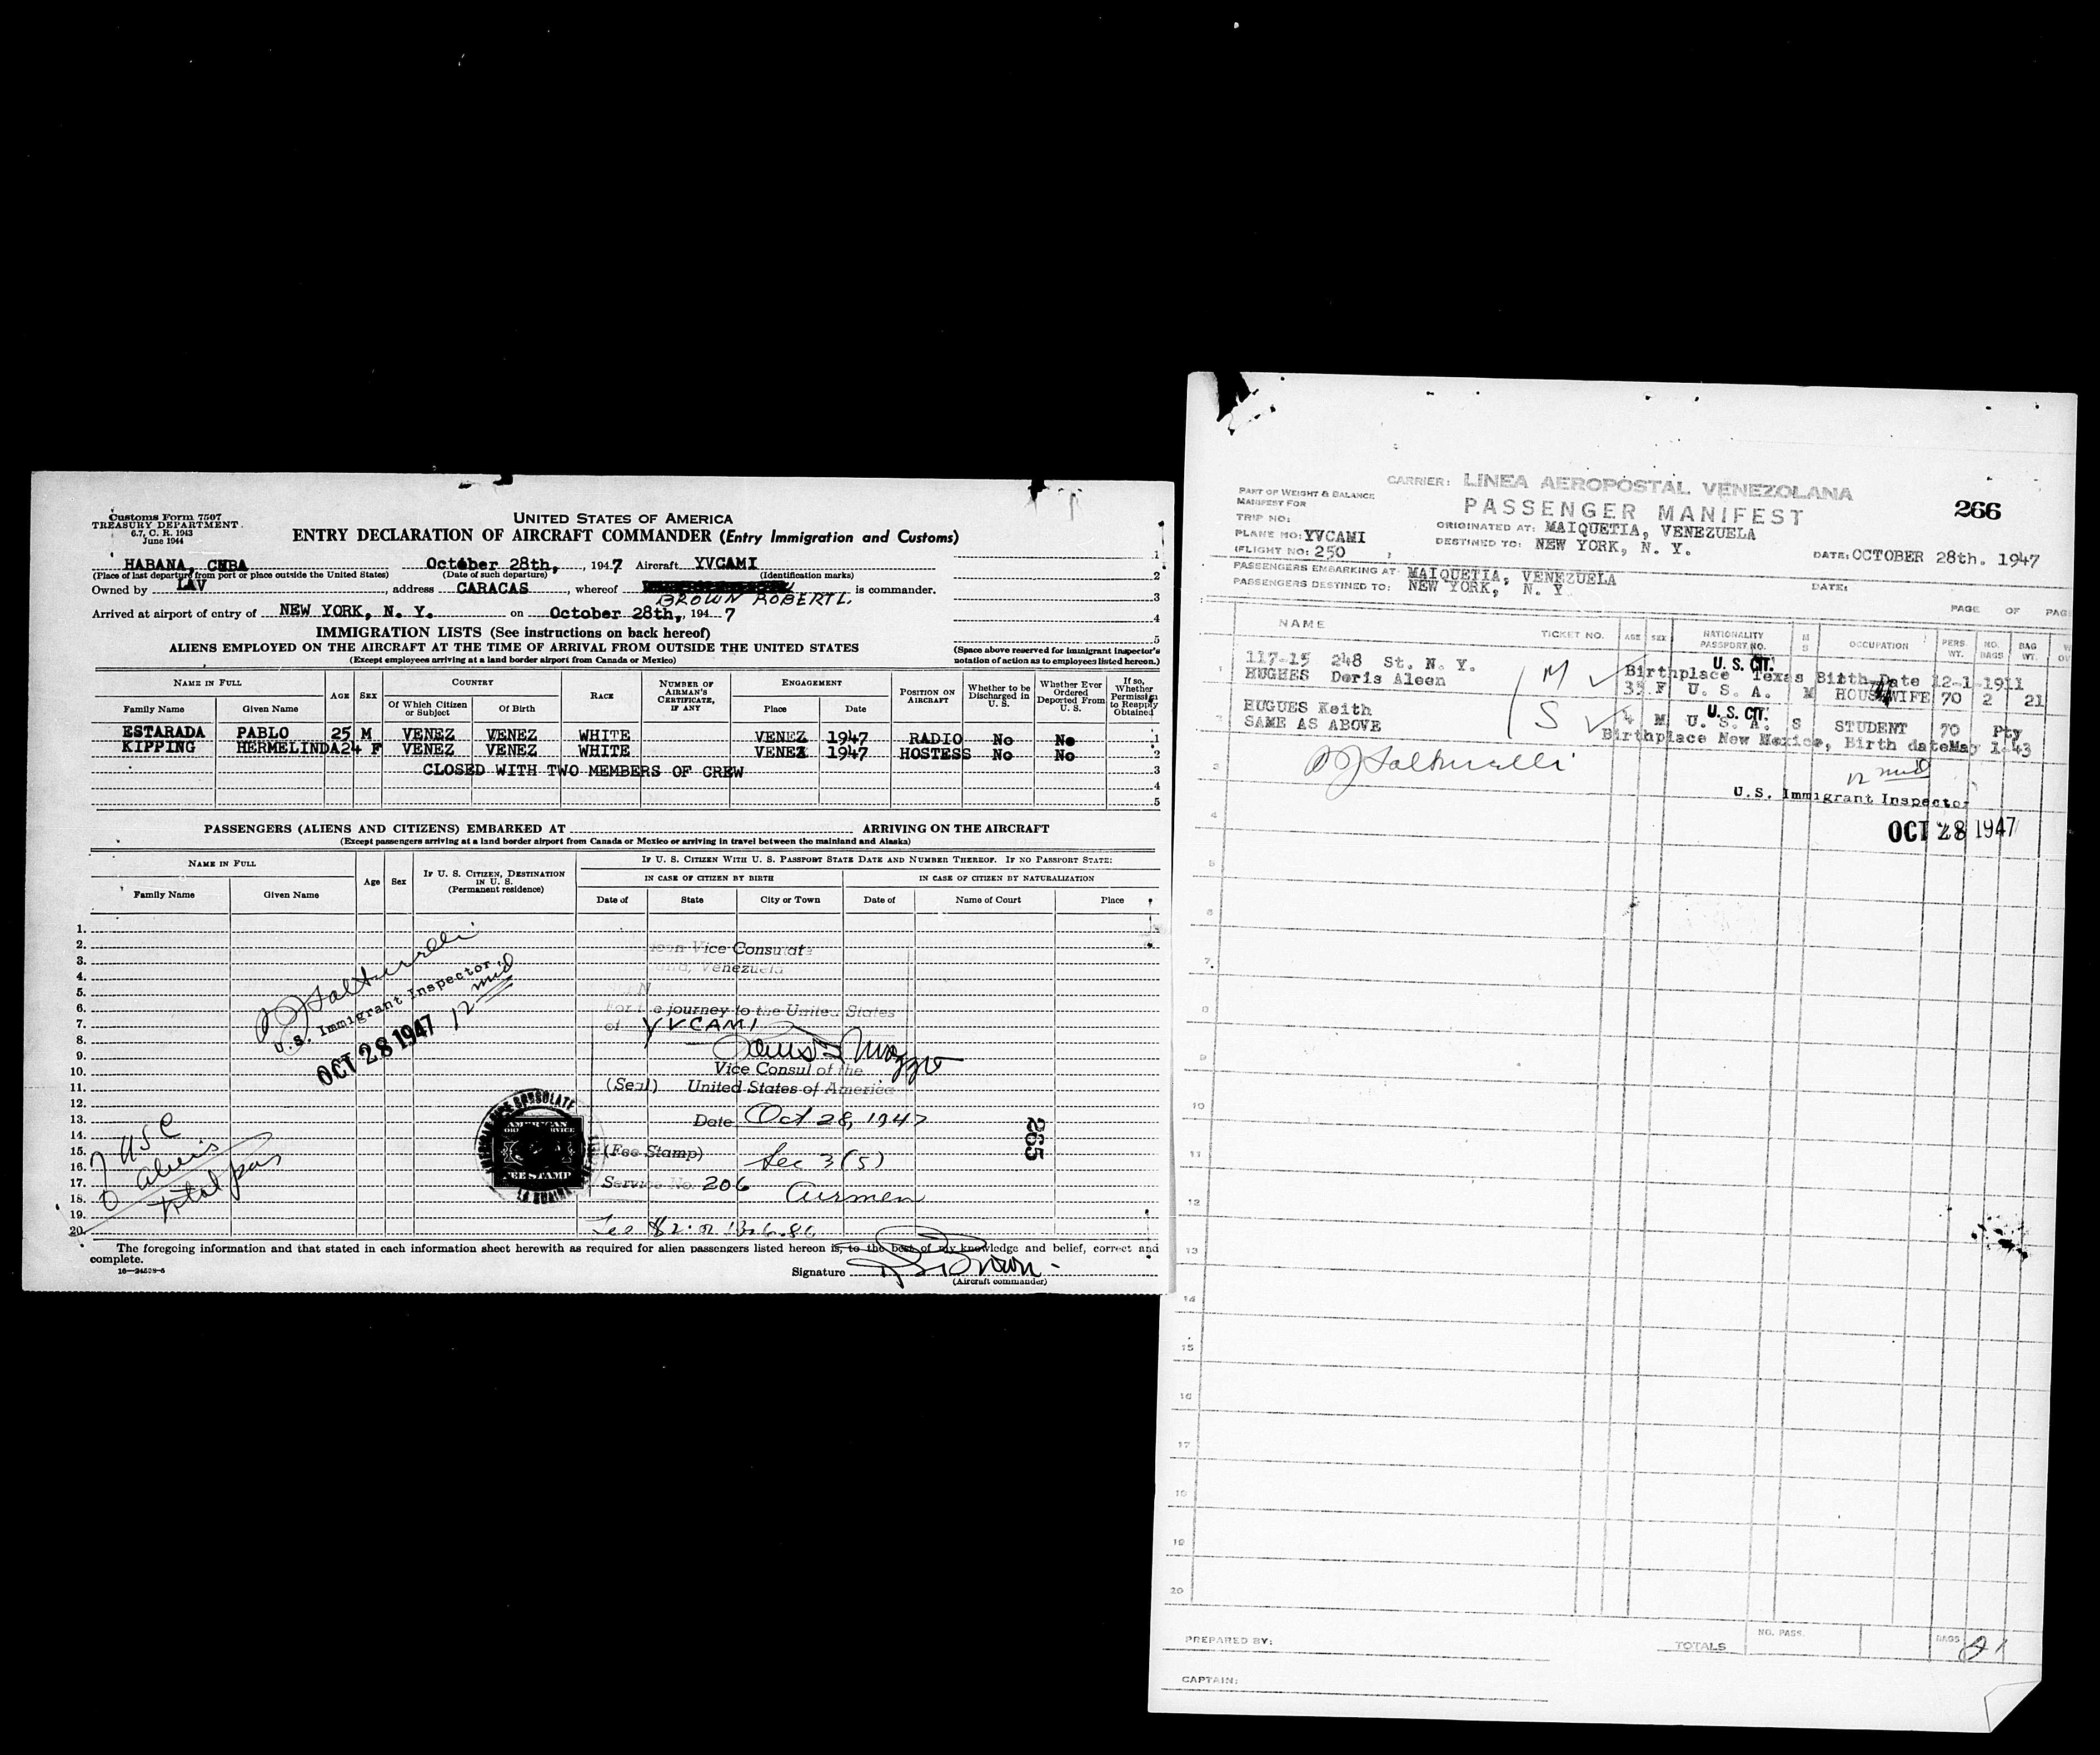 Customs Form 7507
TREASURY DEPARTMENT
6.7, C. R. 1943
June 1944
UNITED STATES OF AMERICA
ENTRY DECLARATION OF AIRCRAFT COMMANDER (Entry Immigration and Customs)
HABANA, CUBA October 28th, , 1947 Aircraft YVCAMI
(Place of last departure from port or place outside the United States) (Date of such departure) (Identification marks)
Owned by LAV , address CARACAS , whereof BROWN ROBERT L. is commander.
Arrived at airport of entry of NEW YORK, N. Y. on October 28th, , 1947
IMMIGRATION LISTS (See instructions on back hereof)
ALIENS EMPLOYED ON THE AIRCRAFT AT THE TIME OF ARRIVAL FROM OUTSIDE THE UNITED STATES
(Except employees arriving at a land border airport from Canada or Mexico)
1
2
3
4
5
(Space above reserved for immigrant inspector's notation of action as to employees listed hereon.)
NAME IN FULL AGE SEX COUNTRY RACE NUMBER OF AIRMAN'S CERTIFICATE, IF ANY ENGAGEMENT POSITION ON AIRCRAFT Whether to be Discharged in U. S. Whether Ever Ordered Deported From U. S. If so, Whether Permission to Reapply Obtained
Family Name Given Name Of Which Citizen or Subject Of Birth Place Date
ESTARADA PABLO 25 M VENEZ VENEZ WHITE VENEZ 1947 RADIO No No 1
KIPPING HERMELINDA 24 F VENEZ VENEZ WHITE VENEZ 1947 HOSTESS No No 2
CLOSED WITH TWO MEMBERS OF CREW 3
4
5
PASSENGERS (ALIENS AND CITIZENS) EMBARKED AT ARRIVING ON THE AIRCRAFT
(Except passengers arriving at a land border airport from Canada or Mexico or arriving in travel between the mainland and Alaska)
NAME IN FULL Age Sex IF U. S. CITIZEN, DESTINATION IN U. S. (Permanent residence) IF U. S. CITIZEN WITH U. S. PASSPORT STATE DATE AND NUMBER THEREOF. IF NO PASSPORT STATE:
IN CASE OF CITIZEN BY BIRTH IN CASE OF CITIZEN BY NATURALIZATION
Family Name Given Name Date of State City or Town Date of Name of Court Place
1.
2.
3.
4.
5.
6.
7.
8.
9.
10.
11.
12.
13.
14.
15.
16.
17.
18.
19.
20.
U.S. Immigrant Inspector
12 mid
OCT 28 1947
2 USC
0 aliens
total pas
Vice Consulate
Venezuela
For the journey to the United States
of YVCAMI
Vice Consul of the
(Seal) United States of America
Date Oct 28, 1947
(Fee Stamp) Sec 3 (5)
Service No. 206 Airmen
265
AMERICAN
FEE STAMP
The foregoing information and that stated in each information sheet herewith as required for alien passengers listed hereon is, to the best of my knowledge and belief, correct and
complete.
16—24508-6
Signature R L Brown
(Aircraft commander)
CARRIER: LINEA AEROPOSTAL VENEZOLANA
PASSENGER MANIFEST
266
PART OF WEIGHT & BALANCE
MANIFEST FOR
TRIP NO:
PLANE NO: YVCAMI
FLIGHT NO: 250
ORIGINATED AT: MAIQUETIA, VENEZUELA
DESTINED TO: NEW YORK, N. Y.
DATE: OCTOBER 28th. 1947
PASSENGERS EMBARKING AT: MAIQUETIA, VENEZUELA
PASSENGERS DESTINED TO: NEW YORK, N. Y
DATE:
PAGE OF
NAME TICKET NO. AGE SEX NATIONALITY PASSPORT NO. M S OCCUPATION PERS. WT. NO. BAGS BAG WT.
U. S. CIT.
1 117-15 248 St. N. Y. M Birthplace Texas Birth Date 12-1-1911
HUGHES Doris Aleen 35 F U. S. A. M HOUSEWIFE 70 2 21
U. S. CIT.
2 HUGUES Keith S 4 M U. S. A. S STUDENT 70 Pty
SAME AS ABOVE Birthplace New Mexico, Birth date May 1-43
3
12 mid
U.S. Immigrant Inspector
4
OCT 28 1947
5
6
7
8
9
10
11
12
13
14
15
16
17
18
19
20
PREPARED BY: TOTALS NO. PASS. BAGS 21
CAPTAIN: